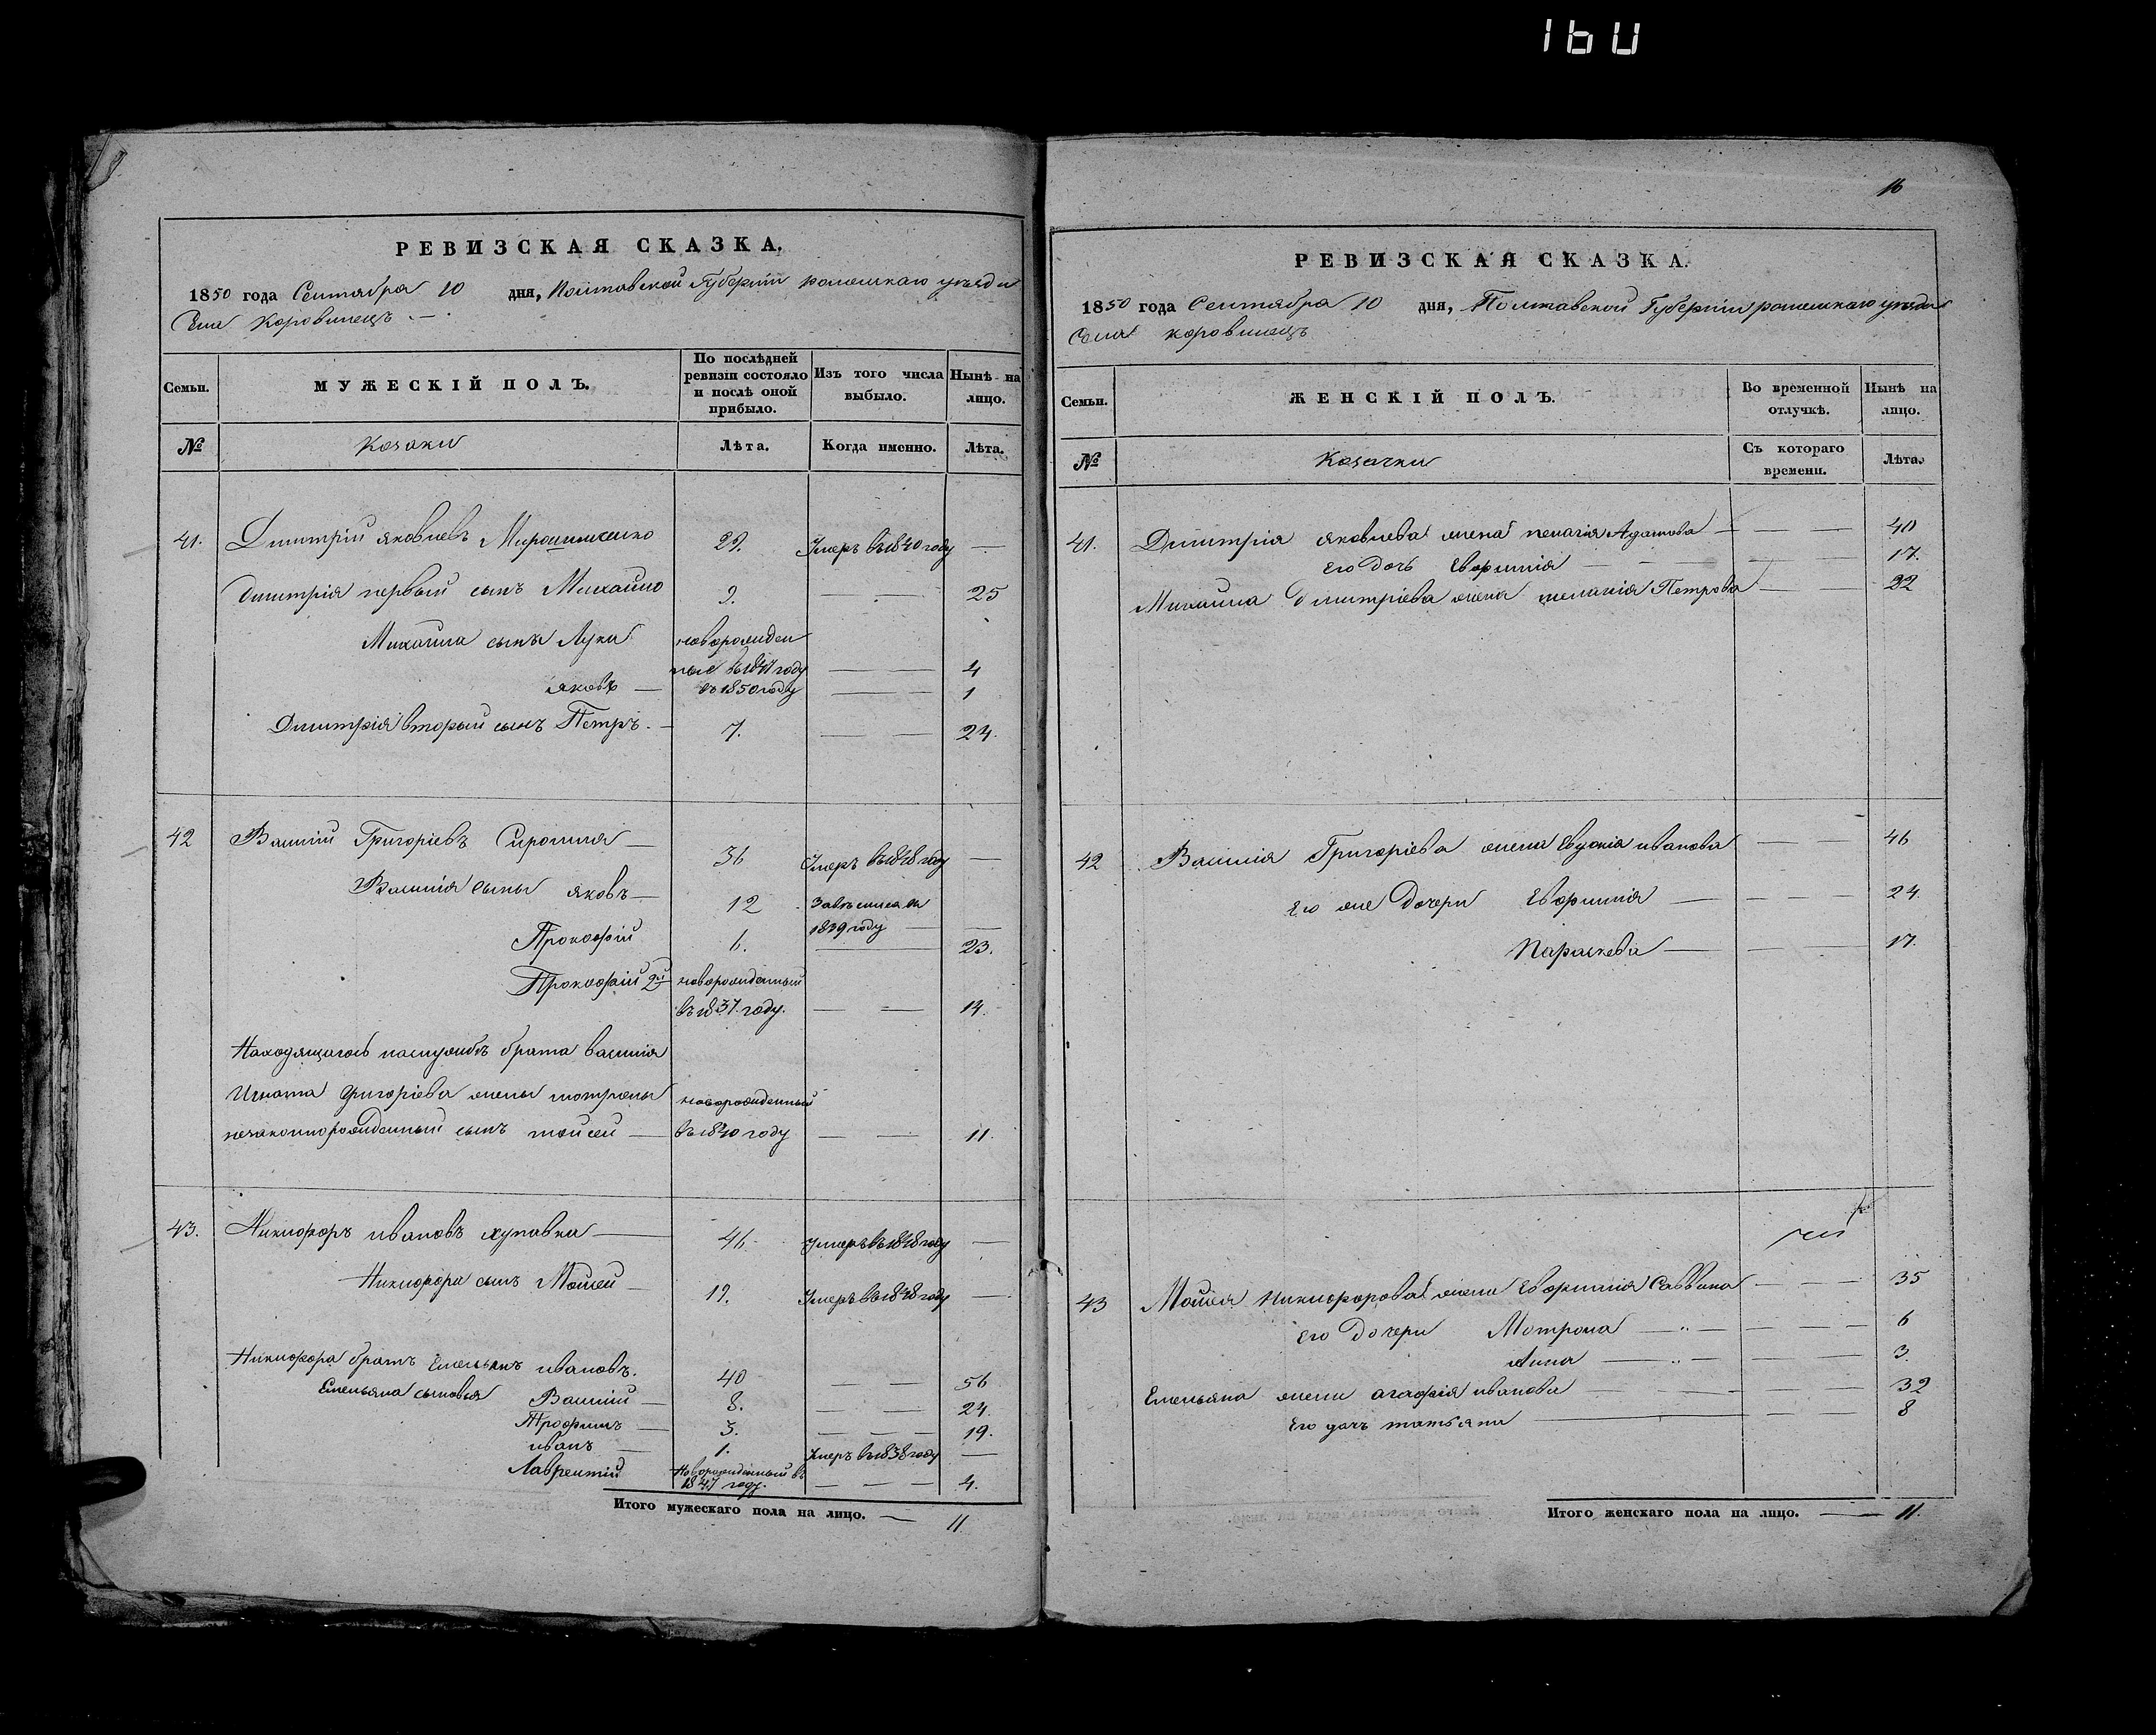 160
РЕВИЗСКАЯ СКАЗКА.
1850 года Сентября 10 дня, Полтавской Губерніи роменскаго уѣзда
Села Коровинецъ
Семьи.
МУЖЕСКІЙ ПОЛЪ.
По послѣдней ревизіи состояло и послѣ оной прибыло.
Изъ того числа выбыло.
Нынѣ на лицо.
№
Козаки
Лѣта.
Когда именно.
Лѣта.
41. Дмитрій яковлевъ Мирошниченко 29. Умеръ въ 1840 году —
Дмитрія первый сынъ Михайло 9. — — 25
Михаила сыны Лука новорожден
ные въ 1847 году — — 4
яковъ — въ 1850 году — — 1
Дмитрія вторый сынъ Петръ. — 7. — — 24.
42 Василій Григоріевъ Сиротия — 36 Умеръ въ 1848 году —
Василія сыны яковъ — 12
1839 году —
Прокофій 6. — 23.
Прокофій 2й новорожденный
въ 1837 году. — — 14.
Находящагось наслужбѣ брата василія
Игната григоріева жены мотроны новорожденный
незаконнорожденный сынъ мойсей — въ 1840 году — — 11.
43. Никифоръ ивановъ хупавка — 46 Умеръ въ 1848 году —
Никифора сынъ Мойсей — 19. Умеръ въ 1848 году —
Никифора братъ Емельянъ ивановъ. 40 — — 56
Емельяна сыновья Василій — 8. — — 24.
Трофимъ — 3. — — 19.
иванъ — 1. Умеръ въ 1838 году —
Лаврентій Новорожденный въ
1847 году. — — — 4.
Итого мужескаго пола на лицо. — 11
16
РЕВИЗСКАЯ СКАЗКА.
1850 года Сентября 10 дня, Полтавской Губерніи роменскаго уѣзда
Села коровинецъ
Семьи.
ЖЕНСКІЙ ПОЛЪ.
Во временной отлучкѣ.
Нынѣ на лицо.
№
Козачки
Съ котораго времени.
Лѣта.
41. Дмитрія яковлева жена пелагія Адамова — — — 40
Его дочь Евфимія — — — 17.
Михаила дмитріева жена меланія Петрова — — 22
42 Василія Григоріева жена Евдокія иванова — — 46
Его же дочери Евфимія — — — — 24.
Параскева — — — 17.
43 Мойсея никифорова жена Евфимія Саввина — — — 35
Его дочери Мотрона — — — — — 6
Анна — — — — 3.
Емельяна жена агафія иванова — — — 32
Его дочь татьяна — — — 8
Итого женскаго пола на лицо. — 11.